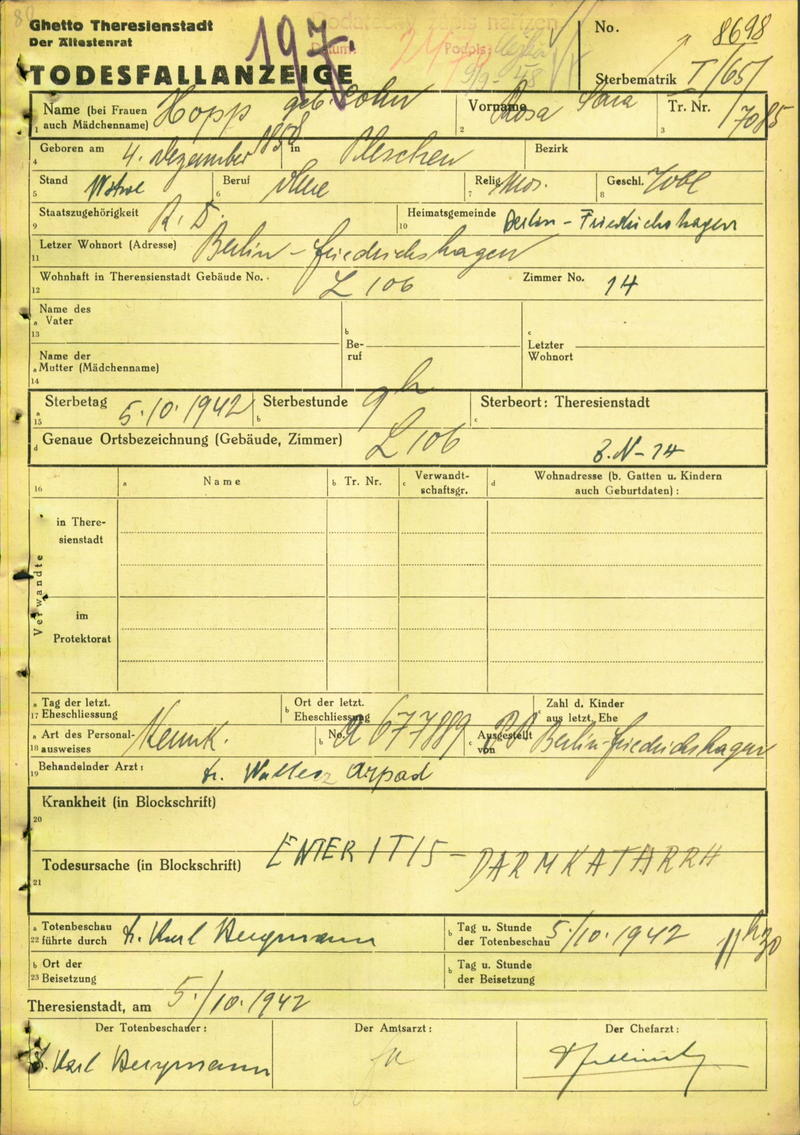 Ghetto Theresienstadt
Der Ältestenrat
TODESFALLANZEIGE
197.
No. 8698
Sterbematrik I/65
Name (bei Frauen auch Mädchenname) Hopp geb. Cohn
1
Vorname Rosa Sara
2
Tr. Nr. I/7085
3
Geboren am 4. Dezember 1858
4
in Pleschen
Bezirk
Stand Witwe
5
Beruf ohne
6
Relig. mos.
7
Geschl. weibl
8
Staatszugehörigkeit R. D.
9
Heimatsgemeinde Berlin-Friedrichshagen
10
Letzer Wohnort (Adresse) Berlin-Friedrichshagen
11
Wohnhaft in Theresienstadt Gebäude No. L 106
12
Zimmer No. 14
Name des
a Vater
13
Name der
a Mutter (Mädchenname)
14
b
Be-
ruf
c
Letzter
Wohnort
Sterbetag 5.10.1942
a
15
Sterbestunde 9 h
b
Sterbeort: Theresienstadt
c
d Genaue Ortsbezeichnung (Gebäude, Zimmer) L 106 Z. N-14
16
a Name
b Tr. Nr.
c Verwandt-
schaftsgr.
d Wohnadresse (b. Gatten u. Kindern
auch Geburtdaten):
Verwandte
in There-
sienstadt
im
Protektorat
a Tag der letzt.
17 Eheschliessung
b Ort der letzt.
Eheschliessung
c Zahl d. Kinder
aus letzt. Ehe
a Art des Personal-
18 ausweises Kennk.
b No. A 677889
c Ausgestellt
von PV Berlin-Friedrichshagen
Behandelnder Arzt: Dr. Arpad
19
Krankheit (in Blockschrift)
20
ENTERITIS - DARMKATARRH
Todesursache (in Blockschrift)
21
a Totenbeschau
22 führte durch Dr. Karl Bergmann
b Tag u. Stunde
der Totenbeschau 5./10.1942 11 h 30
b Ort der
23 Beisetzung
b Tag u. Stunde
der Beisetzung
Theresienstadt, am 5./10.1942
Der Totenbeschauer:
Der Amtsarzt:
Der Chefarzt:
Dr. Karl Bergmann